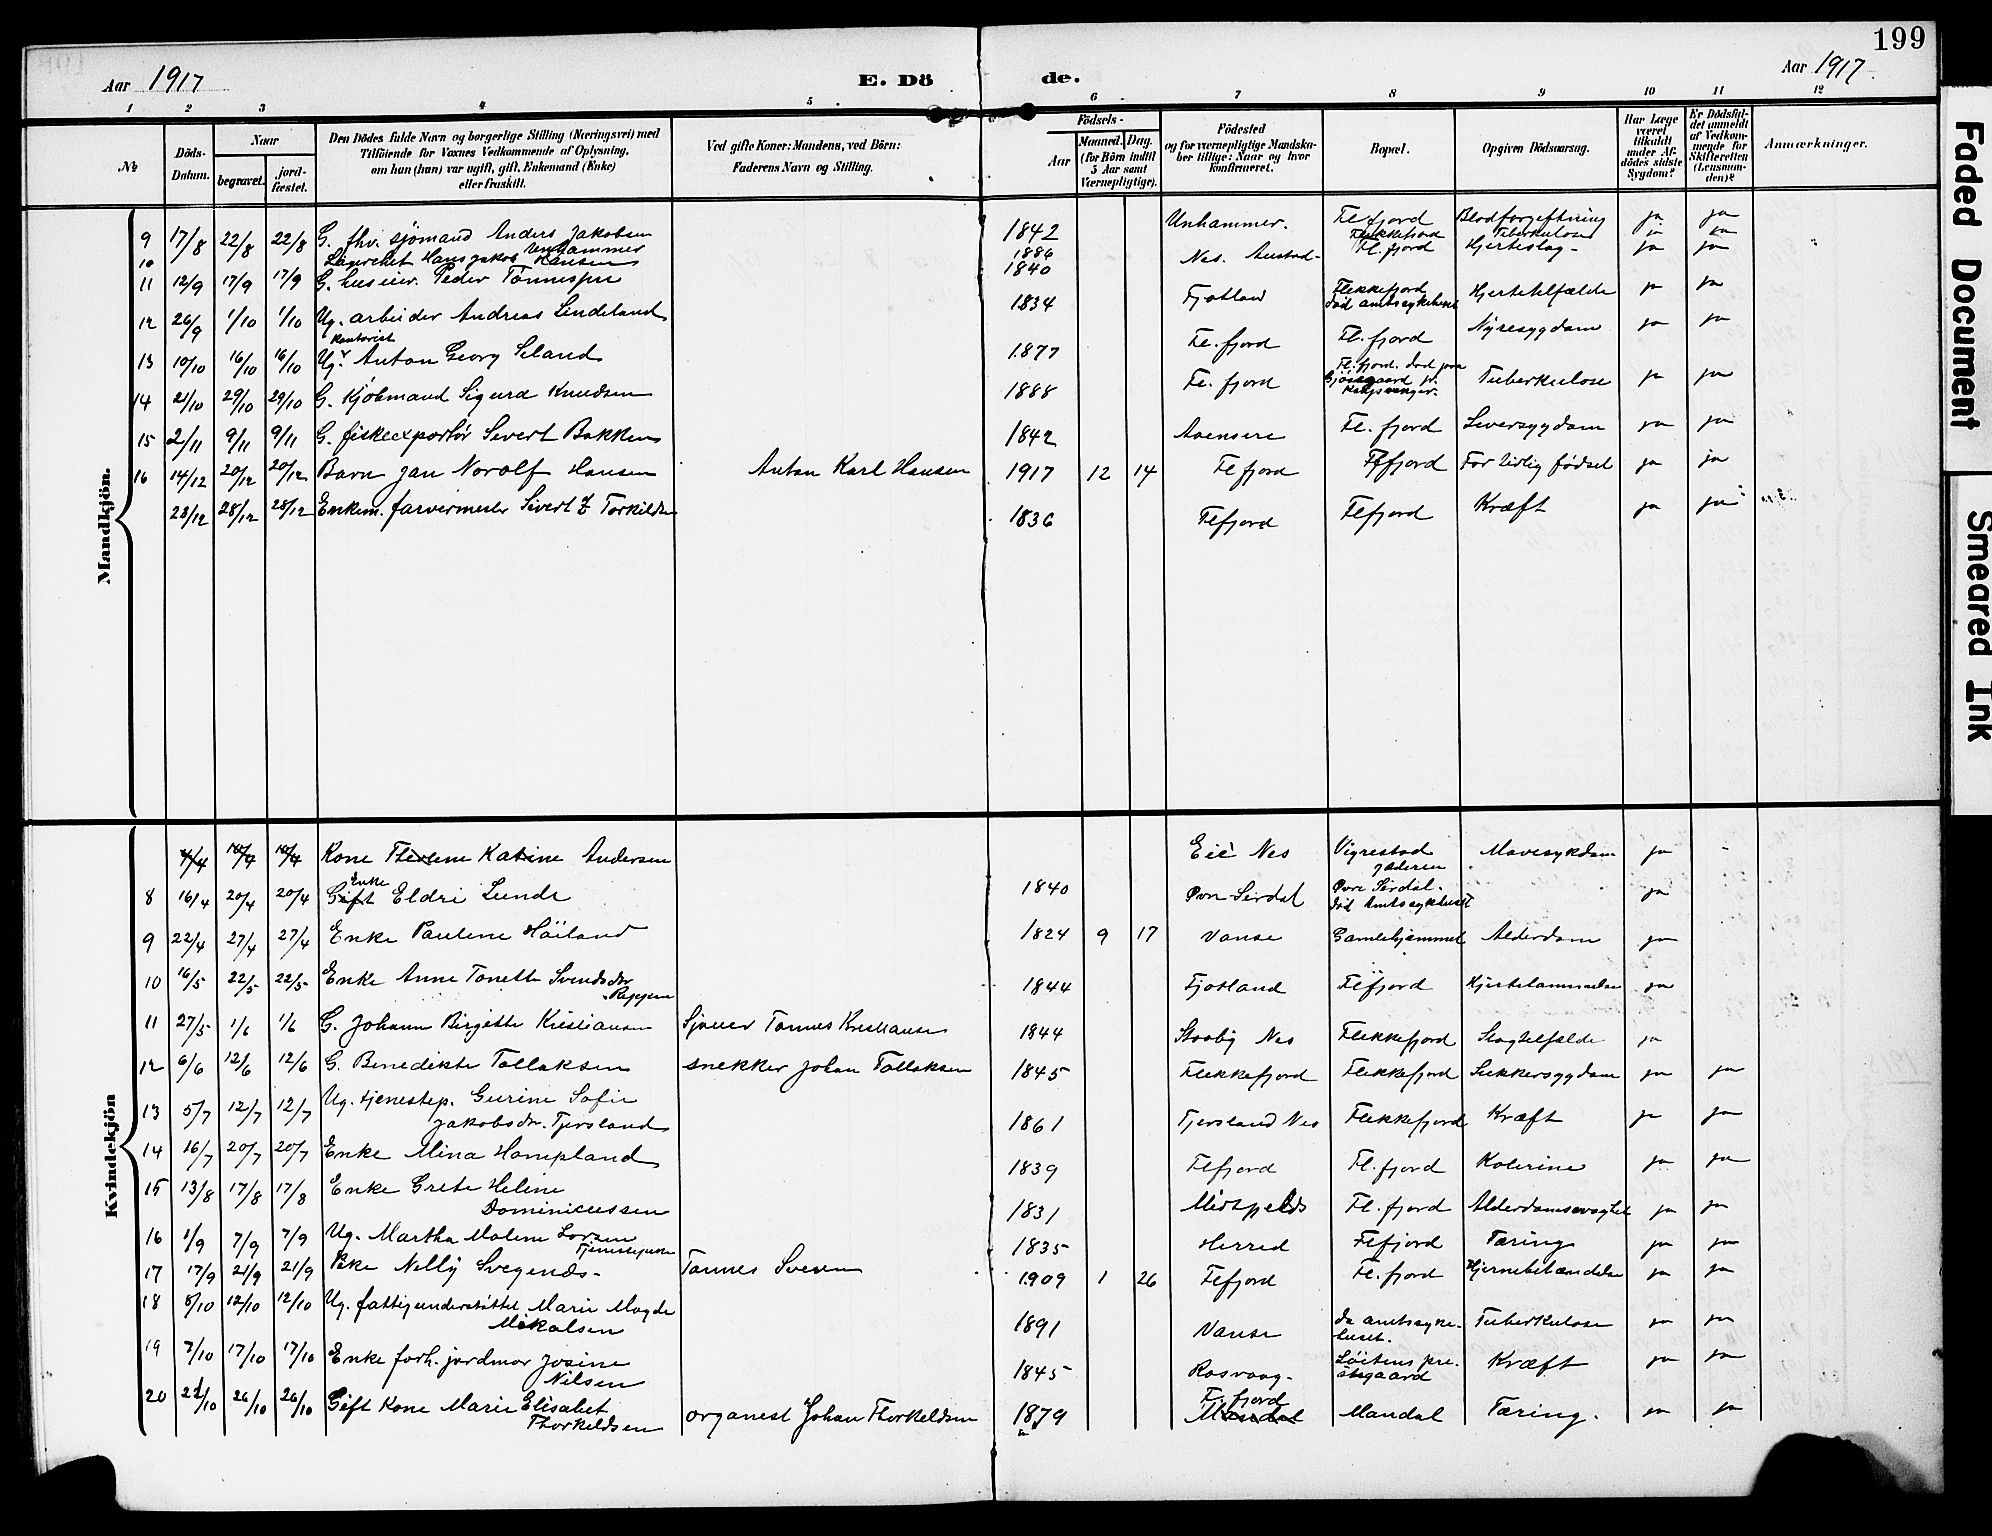 199
Aar 1917 E. Dö de. Aar 1917
1 2 3 4 5 6 7 8 9 10 11 12
№ Döds-Datum. Naar begravet. jordfæstet. Den Dödes fulde Navn og borgerlige Stilling (Næringsvei) med Tilföiende for Voxnes Vedkommende af Oplysning, om han (hun) var ugift, gift, Enkemand (Enke) eller fraskilt. Ved gifte Koner: Mandens, ved Börn: Faderens Navn og Stilling. Födsels- Aar Maaned. Dag. (for Börn indtil 5 Aar samt Værnepligtige). Födested og for værnepligtige Mandskaber tillige: Naar og hvor konfirmeret. Bopæl. Opgiven Dödsaarsag. Har Læge været tilkaldt under Afdödes sidste Sygdom? Er Dödsfaldet anmeldt af Vedkommende for Skifteretten (Lensmanden)? Anmærkninger.
Mandkjön.
9 17/8 22/8 22/8 G. fhv. sjömand Anders Jakobsen Unhammer 1842 Unhammer. Flefjord Blodforgeftning ja ja
10 Hans Jakob Hansen 1886 Flekkefjord Tuberkulose ja ja
11 12/9 17/9 17/9 G. huseier. Peder Tönnespr 1840 Nes. Austad- Fl.fjord Hjerteslag- ja ja
12 26/9 1/10 1/10 Ug. arbeider Andreas Lindeland 1834 Fjotland Flekkefjord död amtssykehuset Hjertetilfælde ja ja
13 10/10 16/10 16/10 Ug. kontorist Anton Georg Seland 1877 Fl.fjord Fl.fjord Nyresygdom ja ja
14 21/10 29/10 29/10 G. Kjöbmand Sigurd Knudsen 1888 Fl.fjord Fl.fjord. död paa Gjösegaard pr. Kongsvinger. Tuberkulose ja ja
15 2/11 9/11 9/11 G. fiskeexportör Sivert Bakken 1842 Aaensire Fl.fjord Leversygdom ja ja
16 14/12 20/12 20/12 Barn Jan Norolf Hansen Anton Karl Hansen 1917 12 14 Flefjord Flfjord For tidlig födsel ja ja
23/12 28/12 28/12 Enkem. farvermester Sivert Z Torkilds 1836 Flefjord Flefjord Kræft ja ja
Kvindekjön
4/4 10/4 10/4 Kone Therlene Katrine Andersen Eie Nes Vigrestad Jæderen Mavesykdom ja
8 16/4 20/4 20/4 Gift Enke Eldri Lunde 1840 Övre Sirdal Övre Sirdal. död Amtssykehuset ja
9 22/4 27/4 27/4 Enke Pauline Höiland 1824 9 17 Vanse Gamlehjemmet Alderdom ja
10 16/5 22/5 22/5 Enke Anne Tonette Svendsdtr Reppen 1844 Fjotland Flefjord ja
11 27/5 1/6 1/6 G. Johanne Birgitte Kristiansen Sjöuer Tönnes Kristiansen 1844 Stooby Nes Flekkefjord Slagtilfælde ja
12 6/6 12/6 12/6 G. Benedikte Tallaksen snekker Johan Tallaksen 1845 Flekkefjord Flekkefjord Sukkersygdom ja ja
13 5/7 12/7 12/7 Ug. tjenestep. Gurine Sofie Jakobsdtr. Tjersland 1861 Tjersland Nes Flekkefjord Kræft ja ja
14 16/7 20/7 20/7 Enke Mina Hompland 1839 Flefjord Fl.fjord Kolerine ja ja
15 13/8 17/8 17/8 Enke Grete Heline Dominicussen 1831 Fl.fjord Alderdomssvaghet ja ja
16 1/9 7/9 7/9 Ug. Martha Malene Larsen Tjenestepike 1835 Herred Flefjord Tæring ja ja
17 17/9 21/9 21/9 Pike Nelly Svegends- Tönnes Sveen 1909 1 26 Flefjord Fl.fjord Hjernebetændelse ja ja
18 8/10 12/10 12/10 Ug. fattigunderstöttet Marie Magda Mikalsen 1891 Vanse Da amtssykehuset. Tuberkulose ja ja
19 7/10 17/10 17/10 Enke forh. jordmor Josine Nilsen 1845 Rosvaag. Löitens prestegaard Kræft ja ja
20 21/10 26/10 26/10 Gift Kone Marie Elisabet Thorkeldsen organist Johan Thorkeldsen 1879 Fl.fjord Mandal Mandal Tæring. ja ja
Faded Document
Smeared Ink